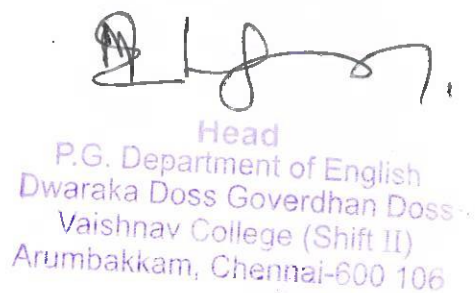 Head
P.G. Department of English
Dwaraka Doss Goverdhan Doss
Vaishnav College (Shift II)
Arumbakkam, Chennai-600 106